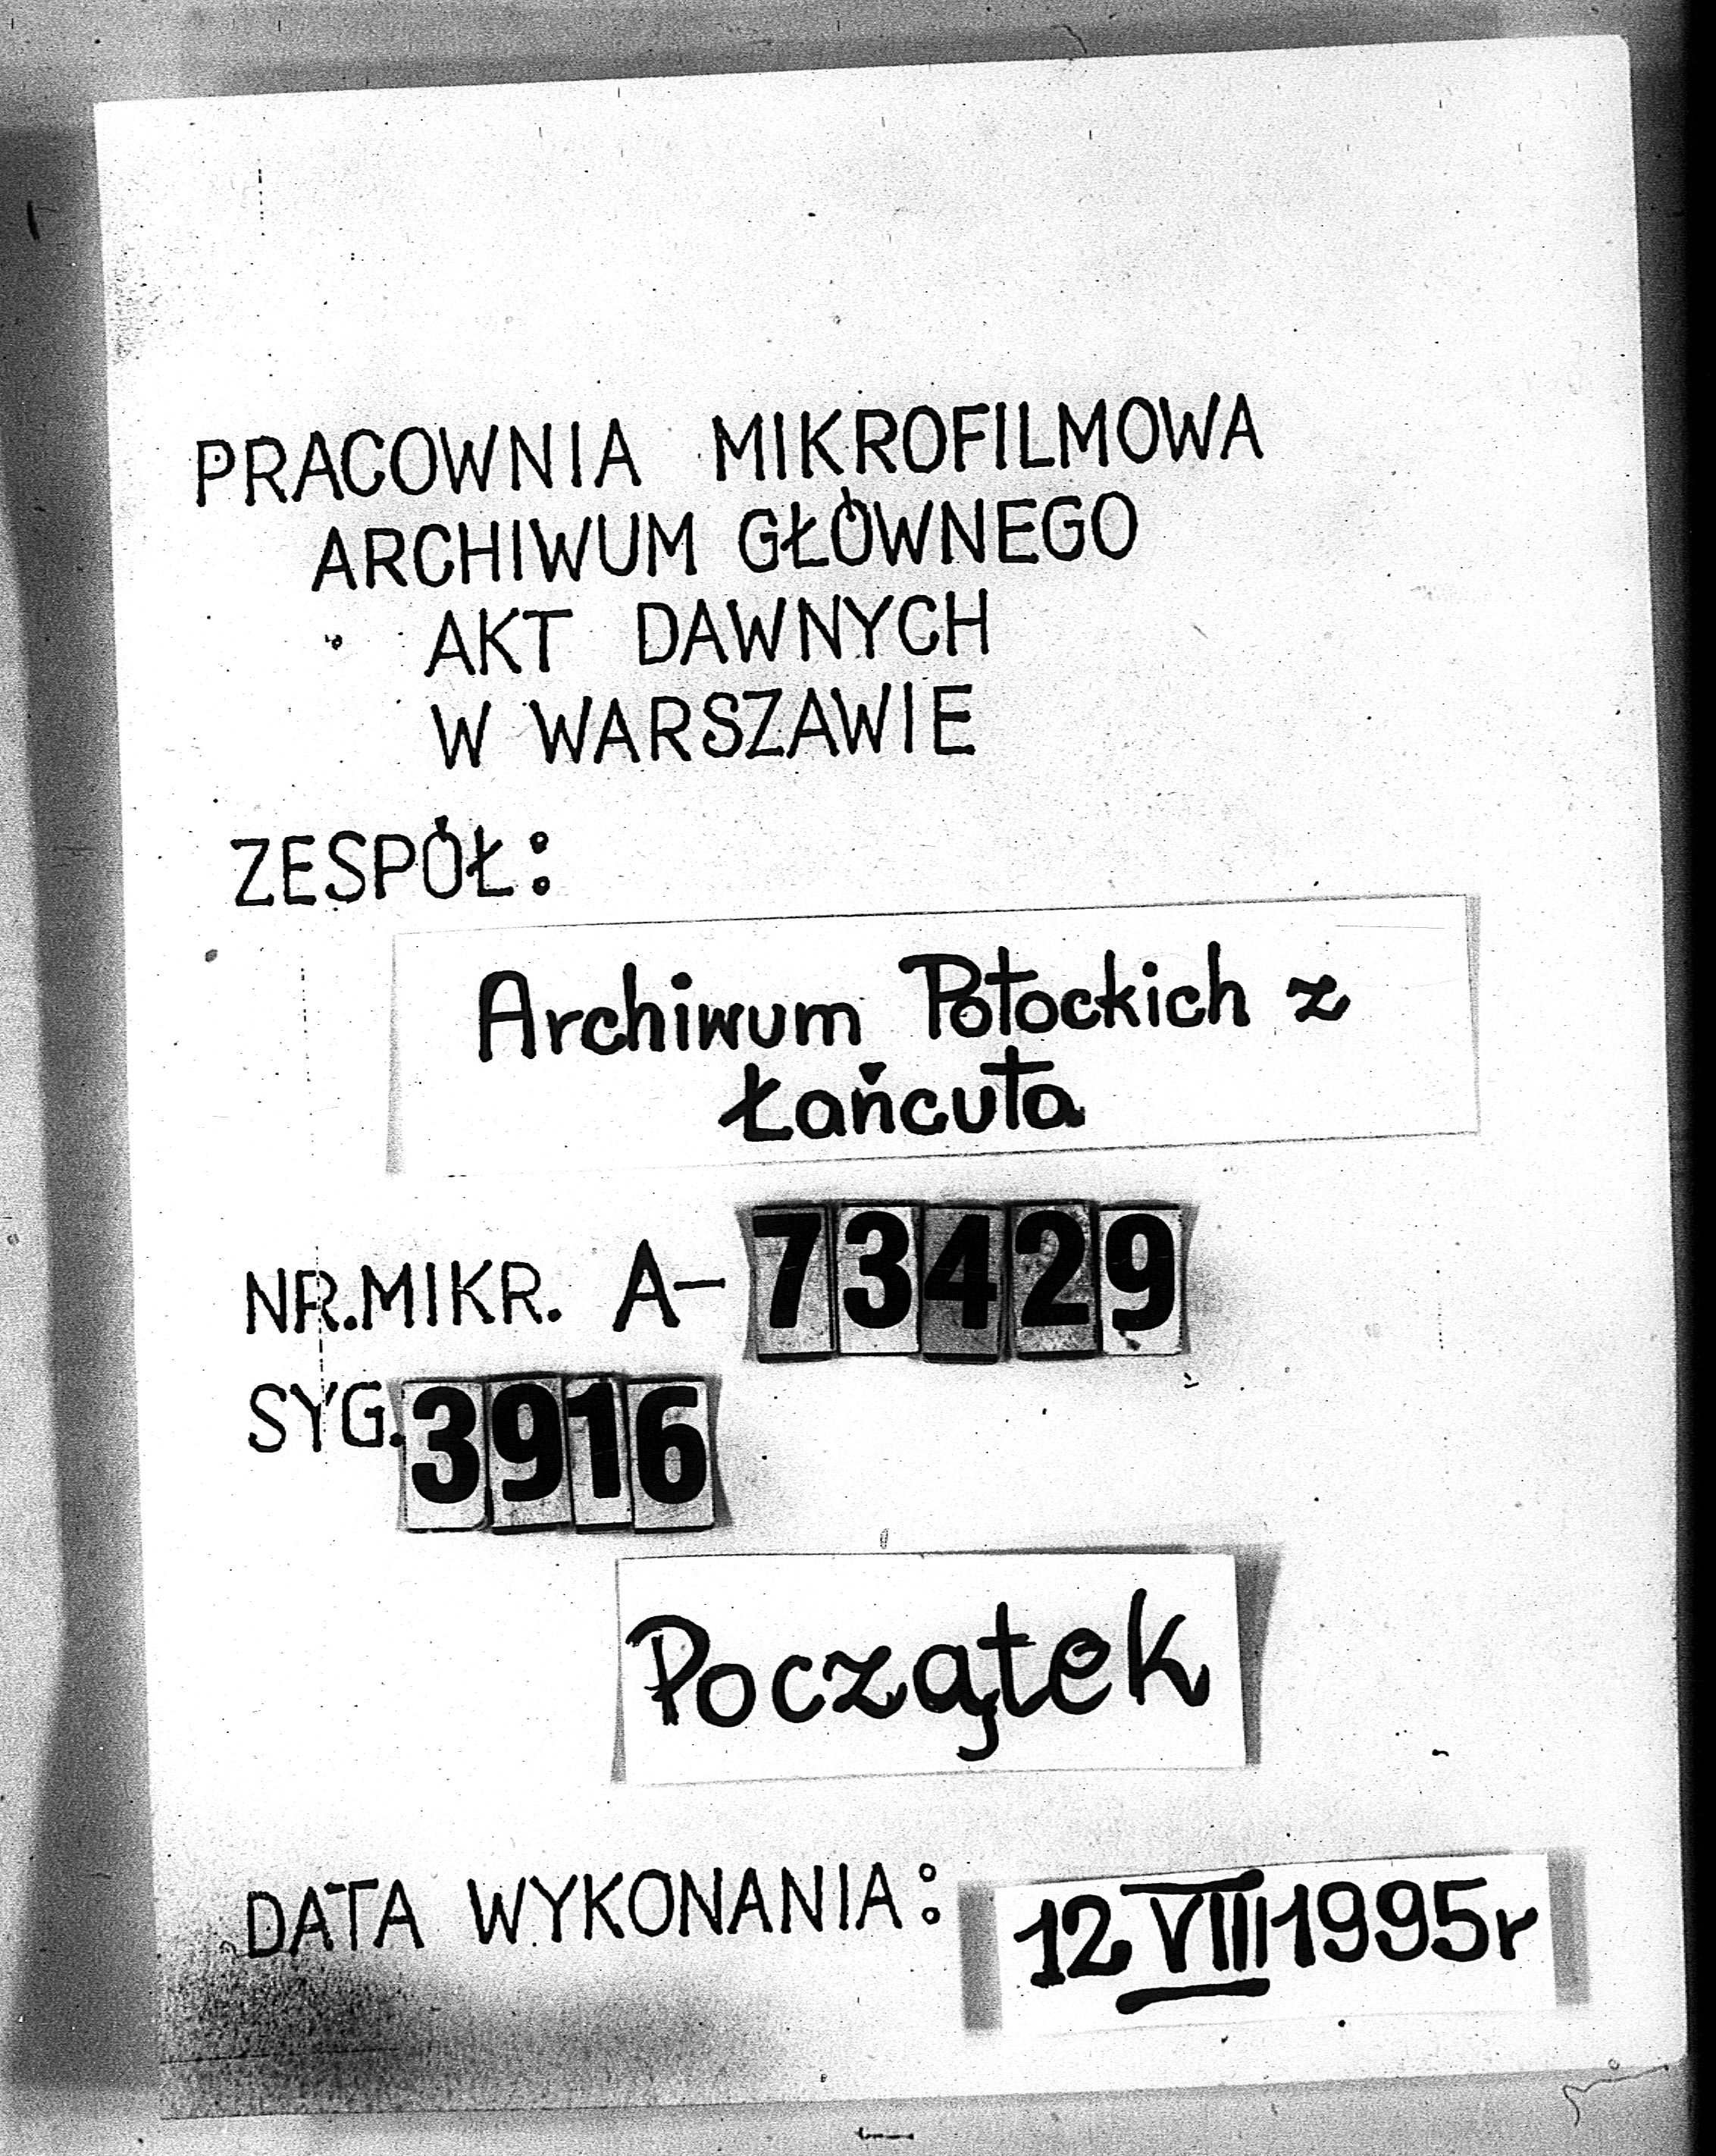 PRACOWNIA MIKROFILMOWA
ARCHIWUM GŁÓWNEGO
AKT DAWNYCH
W WARSZAWIE
ZESPÓŁ:
Archiwum Potockich z
Łańcuta
NR.MIKR. A-73429
SYG.3916
Początek
DATA WYKONANIA: 12 VIII 1995r